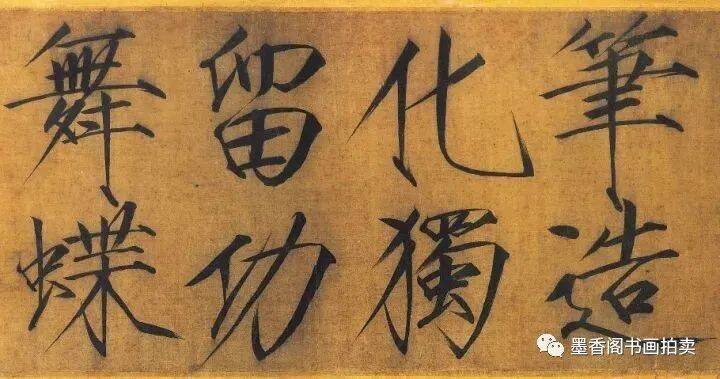 筆造
化獨
留功
舞蝶
墨香阁书画拍卖